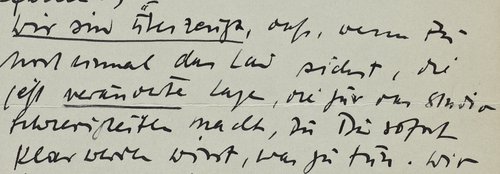 wir sind überzeugt, dass, wenn Du
noch einmal das Land siehst, die
jetzt veränderte Lage, die für das Studio
Schwierigkeiten macht, Du Dir sofort
klar werden wirst, was zu tun. Wir